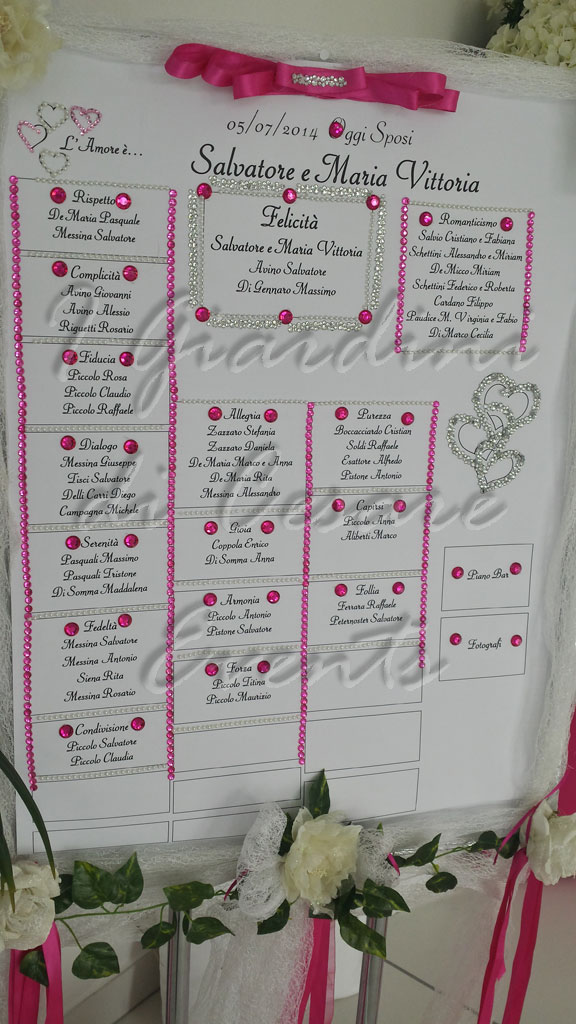 05/07/2014 Oggi Sposi
L'Amore è...
Salvatore e Maria Vittoria
Rispetto
De Maria Pasquale
Messina Salvatore
Complicità
Avino Giovanni
Avino Alessio
Riguetti Rosario
Fiducia
Piccolo Rosa
Piccolo Claudio
Piccolo Raffaele
Dialogo
Messina Giuseppe
Tisci Salvatore
Delli Carri Diego
Campagna Michele
Serenità
Pasquali Massimo
Pasquali Tristone
Di Somma Maddalena
Fedeltà
Messina Salvatore
Messina Antonio
Siena Rita
Messina Rosario
Condivisione
Piccolo Salvatore
Piccolo Claudia
Felicità
Salvatore e Maria Vittoria
Avino Salvatore
Di Gennaro Massimo
Allegria
Zazzaro Stefania
Zazzaro Daniela
De Maria Marco e Anna
De Maria Rita
Messina Alessandro
Gioia
Coppola Enrico
Di Somma Anna
Armonia
Piccolo Antonio
Pistone Salvatore
Forza
Piccolo Titina
Piccolo Maurizio
Purezza
Boccacciardo Cristian
Soldi Raffaele
Esattore Alfredo
Pistone Antonio
Capirsi
Piccolo Anna
Aliberti Marco
Follia
Ferrara Raffaele
Peternoster Salvatore
Romanticismo
Salvio Cristiano e Fabiana
Schettini Alessandro e Miriam
De Micco Miriam
Schettini Federico e Roberta
Cardano Filippo
Paudice M. Virginia e Fabio
Di Marco Cecilia
Piano Bar
Fotografi
I Giardini
di Cesare
Events